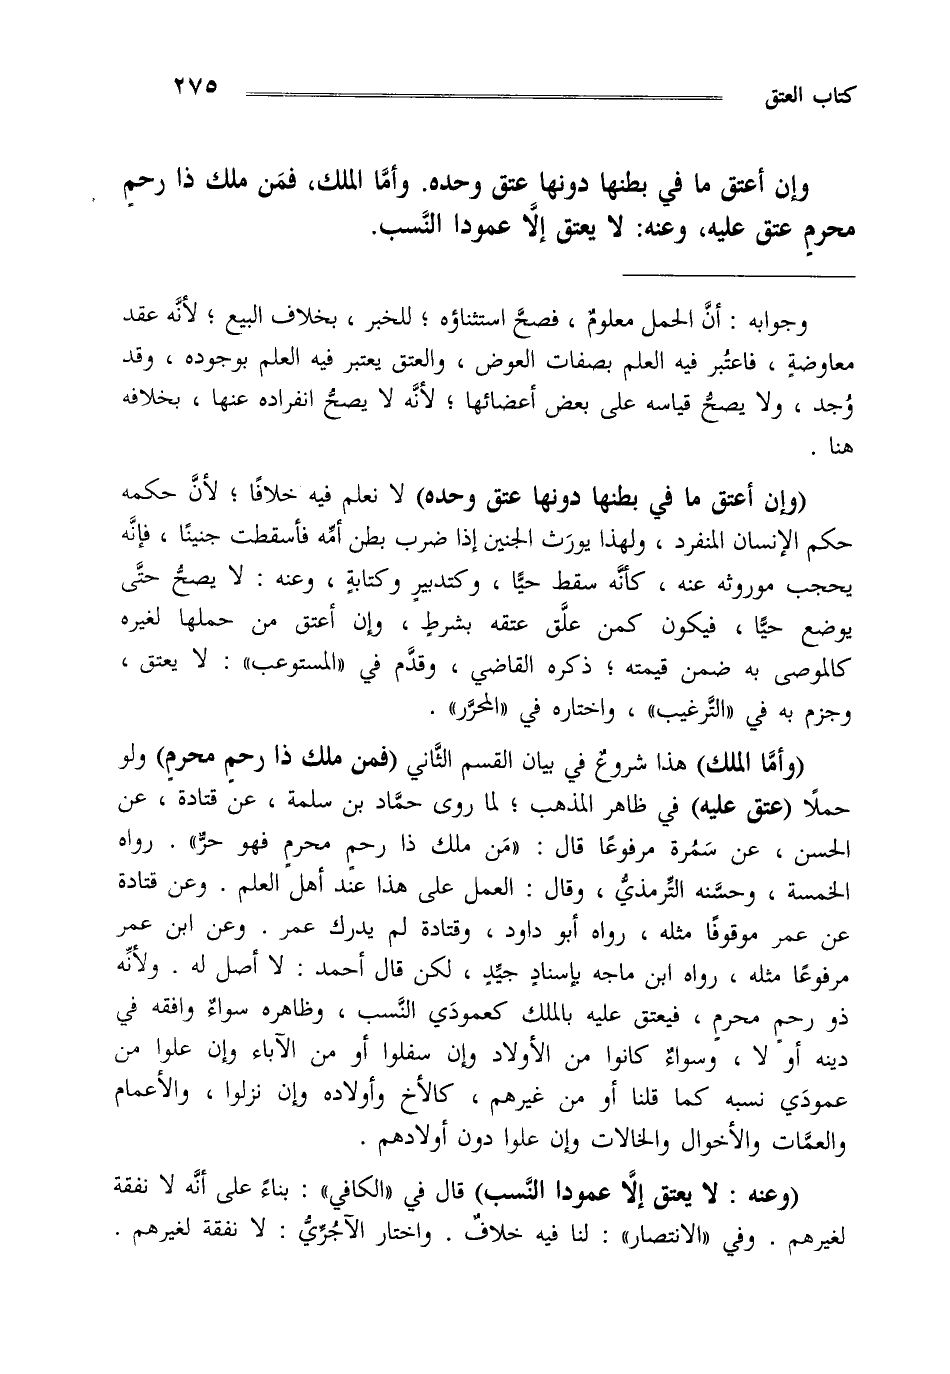 كتاب العتق ٢٧٥
وإن أعتق ما في بطنها دونها عتق وحده. وأمَّا الملك، فمَن ملك ذا رحمٍ
محرمٍ عتق عليه، وعنه: لا يعتق إلَّا عمودا النَّسب.
وجوابه : أنَّ الحمل معلومٌ ، فصحَّ استثناؤه ؛ للخبر ، بخلاف البيع ؛ لأنَّه عقد
معاوضةٍ ، فاعتُبر فيه العلم بصفات العوض ، والعتق يعتبر فيه العلم بوجوده ، وقد
وُجد ، ولا يصحُّ قياسه على بعض أعضائها ؛ لأنَّه لا يصحُّ انفراده عنها ، بخلافه
هنا .
(وإن أعتق ما في بطنها دونها عتق وحده) لا نعلم فيه خلافًا ؛ لأنَّ حكمه
حكم الإنسان المنفرد ، ولهذا يورَث الجنين إذا ضرب بطن أمِّه فأسقطت جنينًا ، فإنَّه
يحجب موروثه عنه ، كأنَّه سقط حيًّا ، وكتدبيرٍ وكتابةٍ ، وعنه : لا يصحُّ حتَّى
يوضع حيًّا ، فيكون كمن علَّق عتقه بشرطٍ ، وإن أعتق من حملها لغيره
كالموصى به ضمن قيمته ؛ ذكره القاضي ، وقدَّم في «المستوعب» : لا يعتق ،
وجزم به في «التَّرغيب» ، واختاره في «المحرَّر» .
(وأمَّا الملك) هذا شروعٌ في بيان القسم الثَّاني (فمن ملك ذا رحمٍ محرمٍ) ولو
حملًا (عتق عليه) في ظاهر المذهب ؛ لما روى حمَّاد بن سلمة ، عن قتادة ، عن
الحسن ، عن سَمُرة مرفوعًا قال : «مَن ملك ذا رحمٍ محرمٍ فهو حرٌّ» . رواه
الخمسة ، وحسَّنه التِّرمذيُّ ، وقال : العمل على هذا عند أهل العلم . وعن قتادة
عن عمر موقوفًا مثله ، رواه أبو داود ، وقتادة لم يدرك عمر . وعن ابن عمر
مرفوعًا مثله ، رواه ابن ماجه بإسنادٍ جيِّدٍ ، لكن قال أحمد : لا أصل له . ولأنَّه
ذو رحمٍ محرمٍ ، فيعتق عليه بالملك كعمودَي النَّسب ، وظاهره سواءٌ وافقه في
دينه أو لا ، وسواءٌ كانوا من الأولاد وإن سفلوا أو من الآباء وإن علوا من
عمودَي نسبه كما قلنا أو من غيرهم ، كالأخ وأولاده وإن نزلوا ، والأعمام
والعمَّات والأخوال والخالات وإن علوا دون أولادهم .
(وعنه : لا يعتق إلَّا عمودا النَّسب) قال في «الكافي» : بناءً على أنَّه لا نفقة
لغيرهم . وفي «الانتصار» : لنا فيه خلافٌ . واختار الآجُرِّيُّ : لا نفقة لغيرهم .